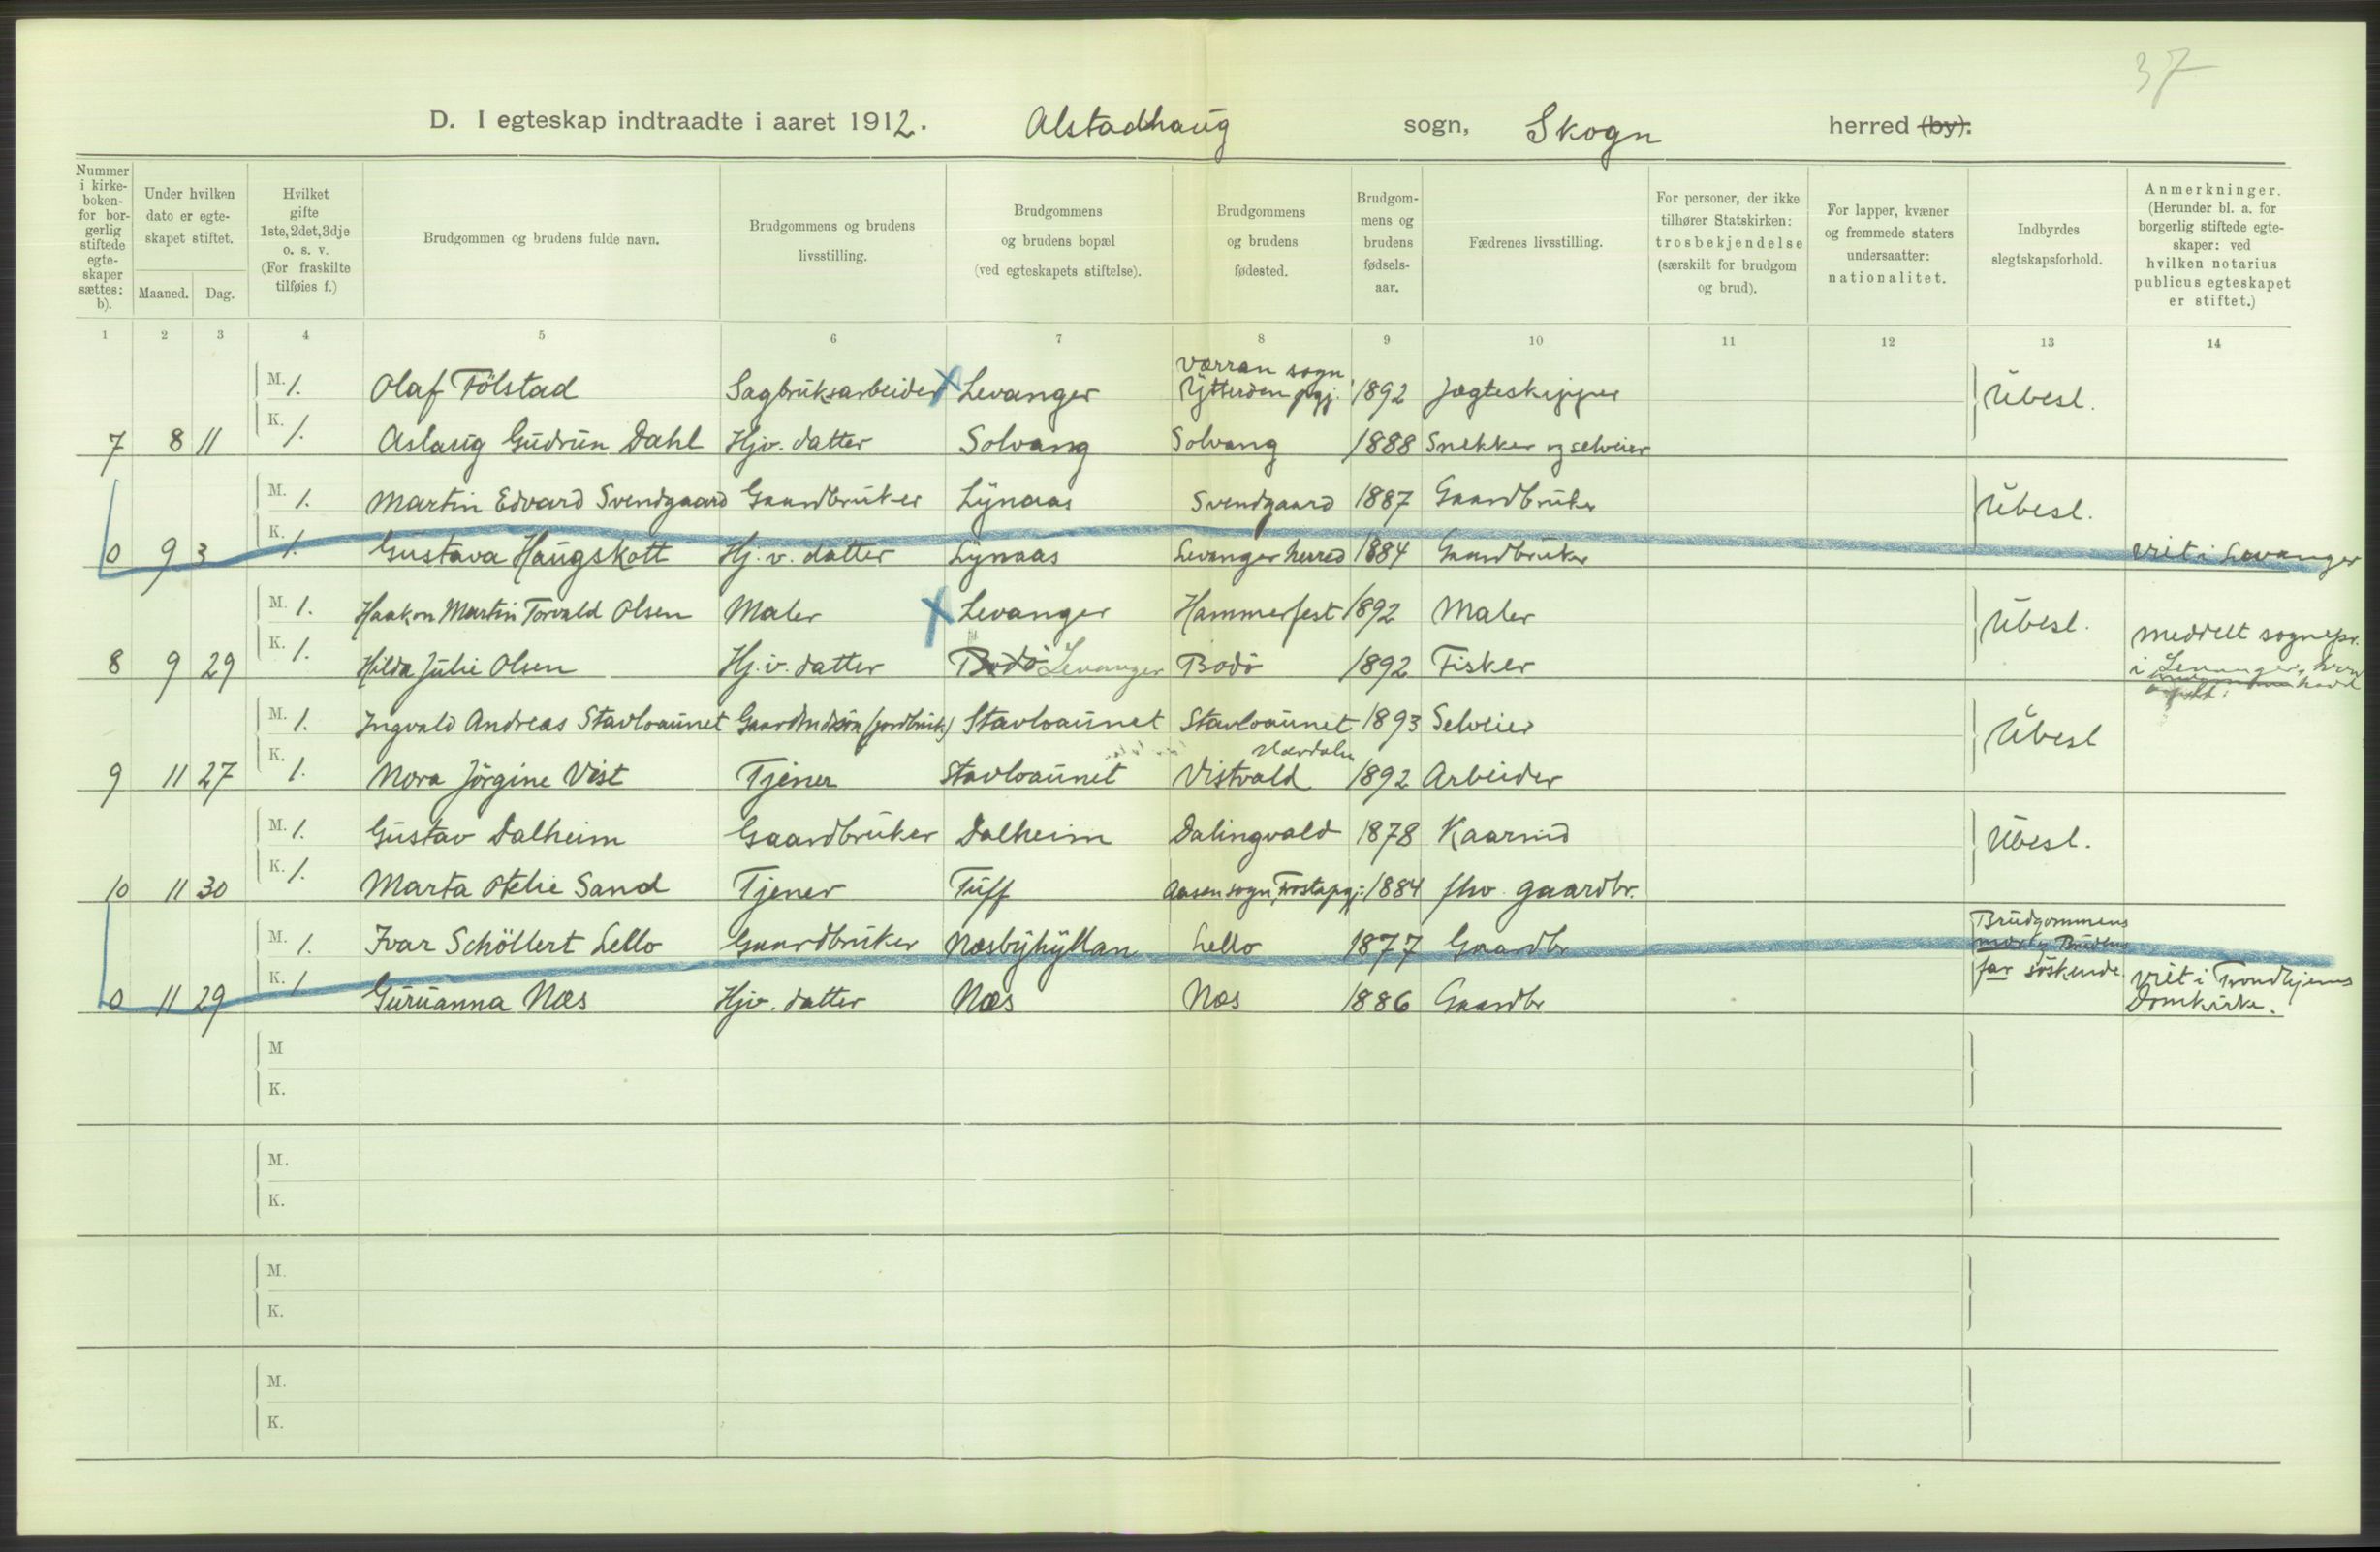 37
D. I egteskap indtraadte i aaret 1912. Alstadhaug sogn, Skogn herred (by).
Nummer i kirke-boken- for bor-gerlig stiftede egte-skaper sættes: b).
Under hvilken dato er egte-skapet stiftet.
Maaned. Dag.
Hvilket gifte 1ste, 2det, 3dje o. s. v. (For fraskilte tilføies f.)
Brudgommen og brudens fulde navn.
Brudgommens og brudens livsstilling.
Brudgommens og brudens bopæl (ved egteskapets stiftelse).
Brudgommens og brudens fødested.
Brudgom-mens og brudens fødsels-aar.
Fædrenes livsstilling.
For personer, der ikke tilhører Statskirken: trosbekjendelse (særskilt for brudgom og brud).
For lapper, kvæner og fremmede staters undersaatter: nationalitet.
Indbyrdes slegtskapsforhold.
Anmerkninger. (Herunder bl. a. for borgerlig stiftede egte-skaper: ved hvilken notarius publicus egteskapet er stiftet.)
1 2 3 4 5 6 7 8 9 10 11 12 13 14
M. 1. Olaf Fölstad Sagbruksarbeider X Levanger Værran sogn Ytterøen pgj. 1892 Jægteskipper Ubesl.
7 8 11 K. 1. Aslaug Gudrun Dahl Hjv. datter Solvang Solvang 1888 Snekker og selveier
M. 1. Martin Edvard Svendgaard Gaardbruker Lynaas Svendgaard 1887 Gaardbruker Ubesl.
0 9 3 K. 1. Gustava Haugskott Hj. v. datter Lynaas Levanger herred 1884 Gaardbruker Viet i Levanger
M. 1. Haakon Martin Torvald Olsen Maler X Levanger Hammerfest 1892 Maler Ubesl.
8 9 29 K. 1. Hilda Julie Olsen Hj. v. datter Bodö Levanger Bodö 1892 Fisker meddelt sognepr. i Levanger,
M. 1. Ingvald Andreas Stavloaunet (jordbruk) Stavloaunet Stavloaunet 1893 Selveier Ubesl
9 11 27 K. 1. Nora Jörgine Vist Tjener Stavloaunet Vistvald Værdalen 1892 Arbeider
M. 1. Gustav Dalheim Gaardbruker Dalheim Dalingvald 1878 Kaarmd Ubesl.
10 11 30 K. 1. Marta Otelie Sand Tjener Tuff Aasen sogn, Frosta pgj. 1884 fhv. gaardbr.
M. 1. Ivar Schöllert Lello Gaardbruker Næsbyhyllan Lello 1877 Gaardbr Brudgommens mor og Brudens far söskende.
0 11 29 K. 1 Guruanna Næs Hjv. datter Næs Næs 1886 Gaardbr Viet i Trondhjems Domkirke.
M
K.
M.
K.
M.
K.
M.
K.